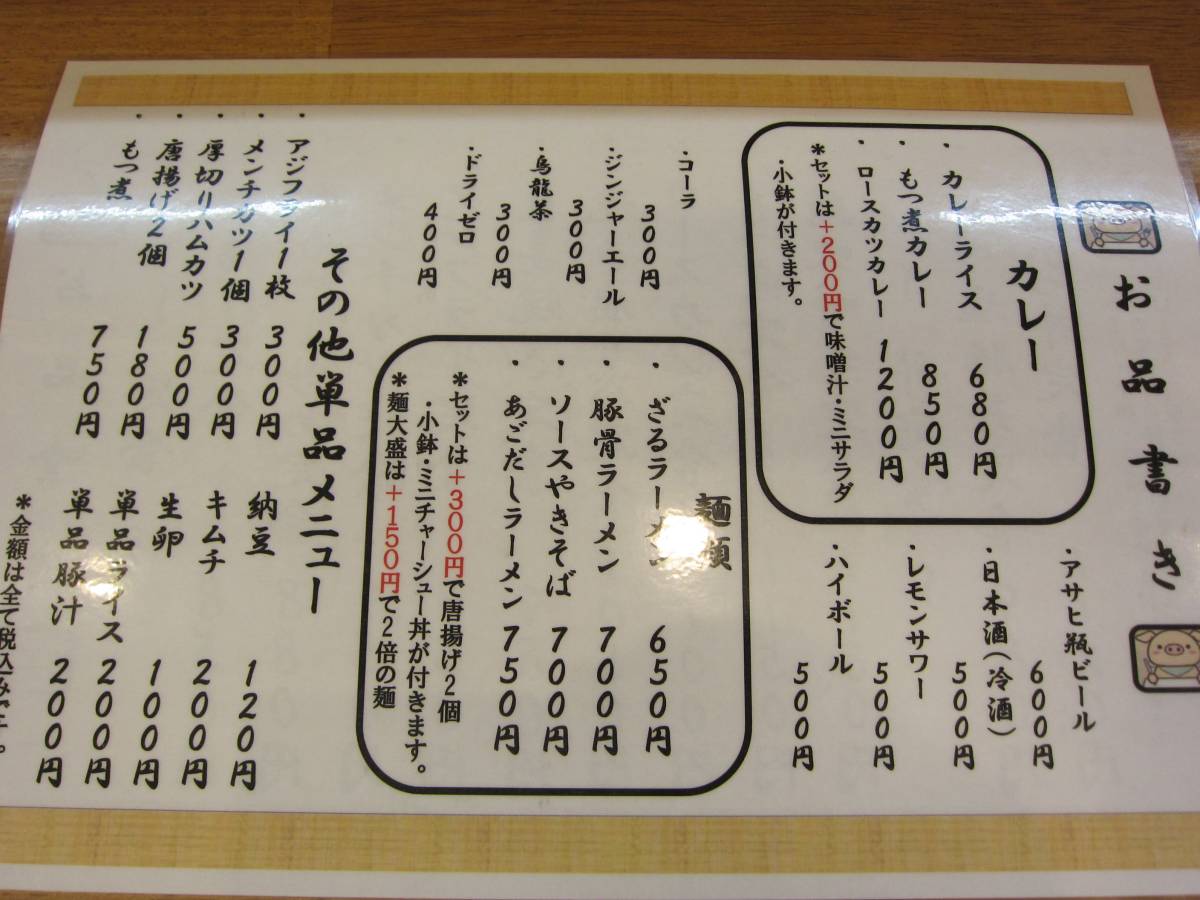 お品書き
カレー
・カレーライス 680円
・もつ煮カレー 850円
・ロースカツカレー 1200円
*セットは+200円で味噌汁・ミニサラダ
・小鉢が付きます。
・アサヒ瓶ビール 600円
・日本酒(冷酒) 500円
・レモンサワー 500円
・ハイボール 500円
・コーラ 300円
・ジンジャーエール 300円
・烏龍茶 300円
・ドライゼロ 400円
麺類
・ざるラーメン 650円
・豚骨ラーメン 700円
・ソースやきそば 700円
・あごだしラーメン 750円
*セットは+300円で唐揚げ2個
・小鉢・ミニチャーシュー丼が付きます。
*麺大盛は+150円で2倍の麺
その他単品メニュー
・アジフライ1枚 300円
・メンチカツ1個 300円
・厚切りハムカツ 500円
・唐揚げ2個 180円
・もつ煮 750円
納豆 120円
キムチ 200円
生卵 100円
単品ライス 200円
単品豚汁 200円
*金額は全て税込みです。